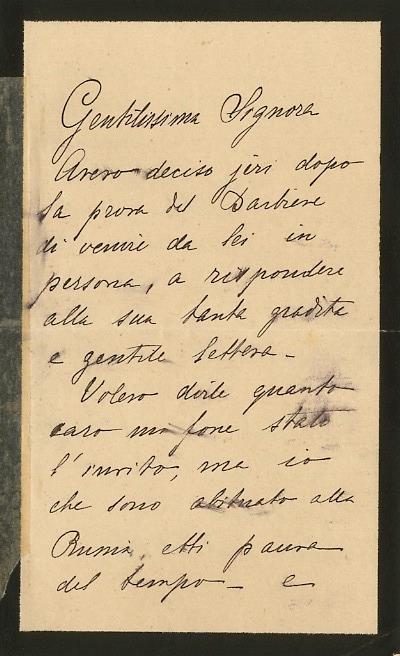 Gentilissima Signora
Avevo deciso jeri dopo
la prova del Barbiere
di venire da lei in
persona, a rispondere
alla sua tanta gradita
e gentile lettera -
Volevo dirle quanto
caro mi fosse stato
l'invito, ma io
che sono abituato alla
Russia, ebbi paura
del tempo - e